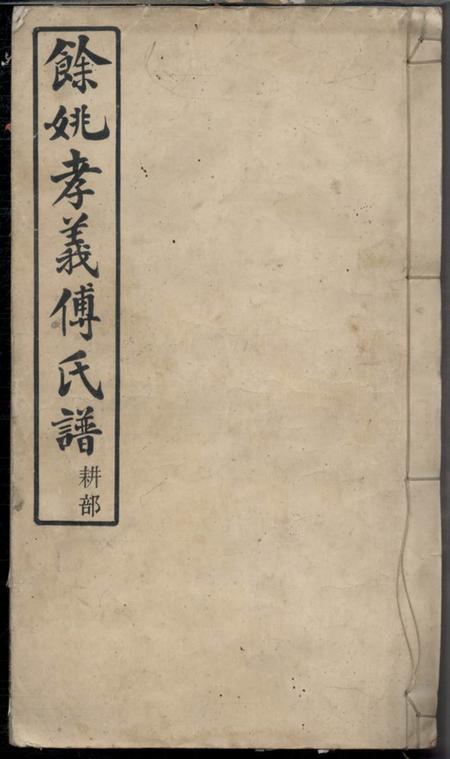 餘姚孝義傅氏譜
耕部